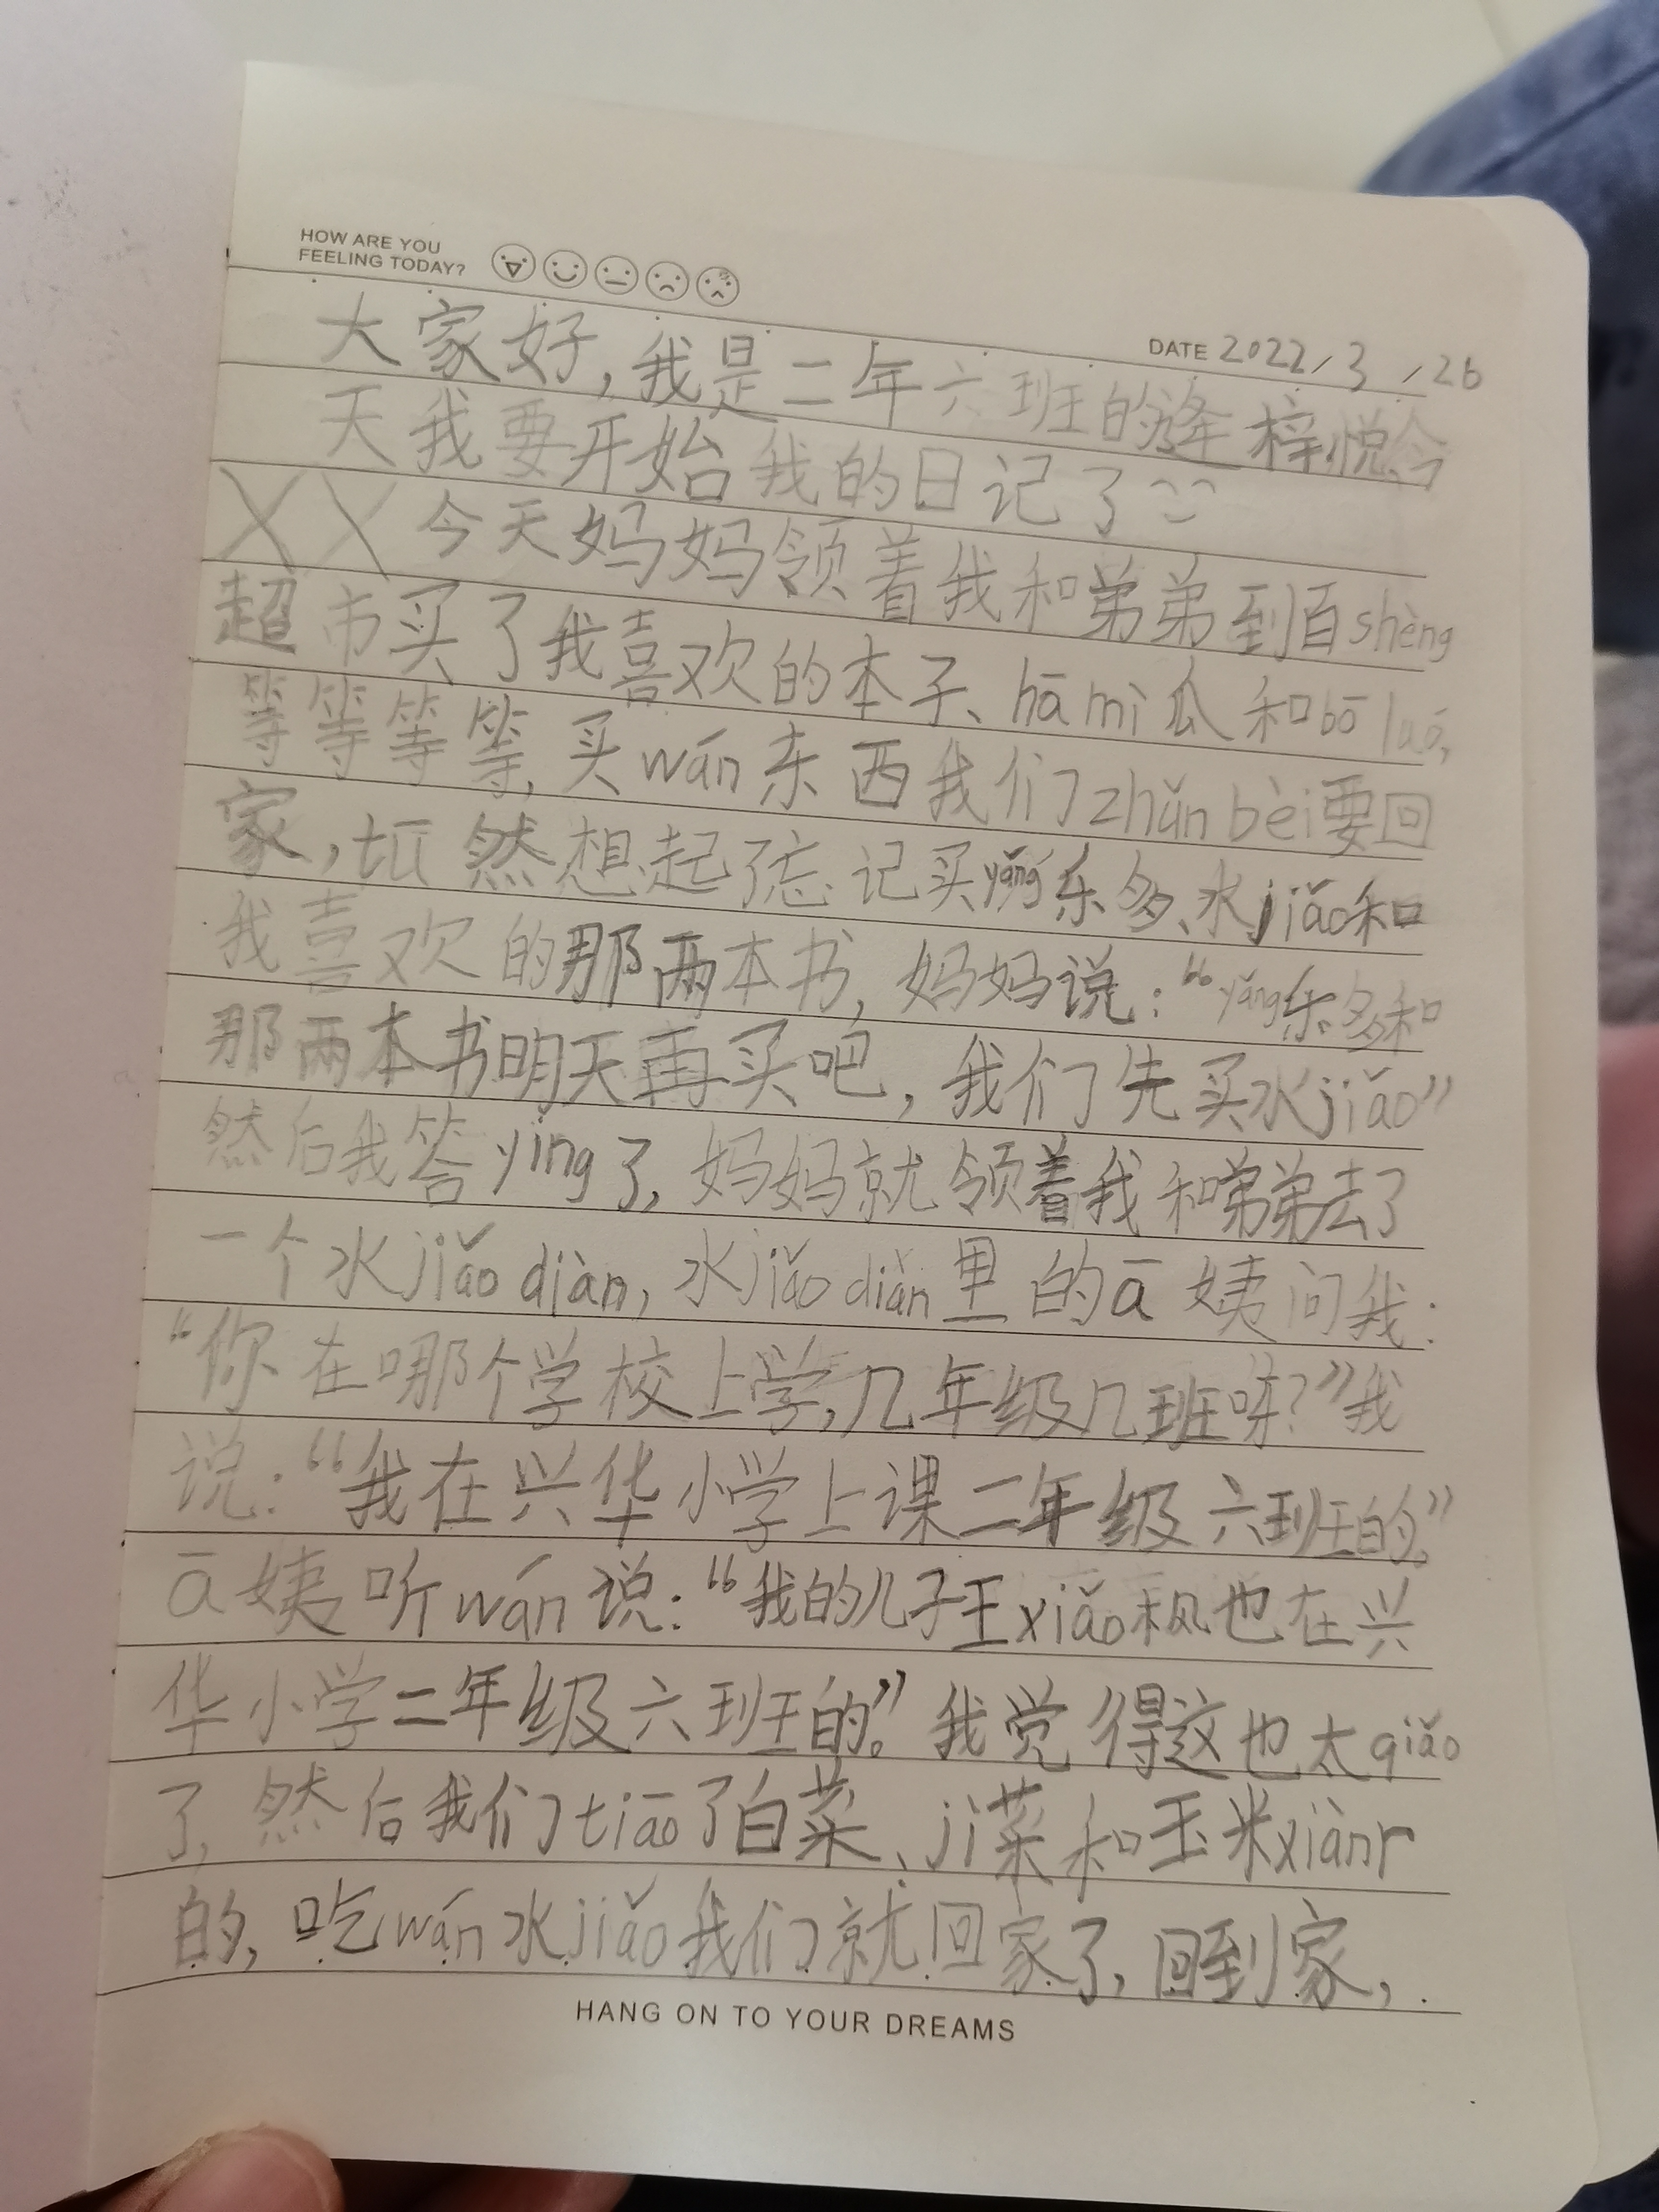 HOW ARE YOU
FEELING TODAY?
DATE 2022/3/26
大家好,我是二年六班的逄梓悦,今
天我要开始我的日记了
XX今天妈妈领着我和弟弟到百shèng
超市买了我喜欢的本子、hāmì瓜和bōluó,
等等等等,买wán东西我们zhǔnbèi要回
家,tū然想起了忘记买yǎng乐多、水jiǎo和
我喜欢的那两本书,妈妈说:“yǎng乐多和
那两本书明天再买吧,我们先买水jiǎo”
然后我答ying了,妈妈就领着我和弟弟去了
一个水jiǎo diàn,水jiǎo diàn里的ā姨问我:
“你在哪个学校上学,几年级几班呀?”我
说:“我在兴华小学上课二年级六班的。”
ā姨听wán说:“我的儿子王xiǎo枫也在兴
华小学二年级六班的。”我觉得这也太qiǎo
了,然后我们tiāo了白菜、jì菜和玉米xiànr
的,吃wán水jiǎo我们就回家了,回到家,
HANG ON TO YOUR DREAMS